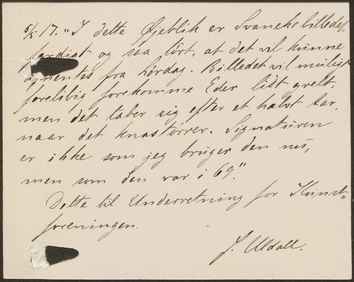 6/2 17. "I dette Øjeblik er Svanekebilledet
færdigt og saa tört, at det vil kunne
afhentes fra Lørdag. Billedet vil muligt
foreløbig forekomme Eder lidt grelt,
men det taber sig efter et halvt Aar,
naar det knastørrer. Signaturen
er ikke som jeg bruger den nu,
men som den var i 69".
Dette til Underretning for Kunst-
foreningen.
J. Uldall.